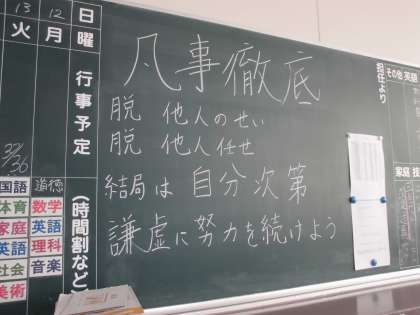 凡事徹底
脱 他人のせい
脱 他人任せ
結局は 自分次第
謙虚に努力を続けよう
担任より
その他
英語
家庭
技
日曜
行事予定
(時間割など)
12
月
道徳
数学
英語
理科
音楽
13
火
国語
体育
家庭
英語
社会
美術